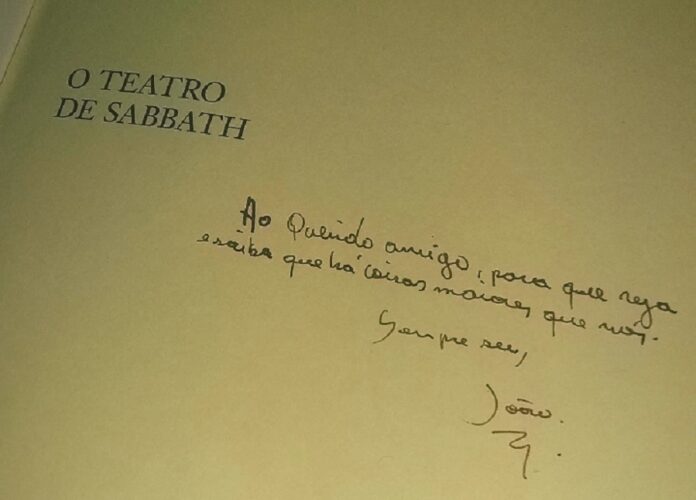 O TEATRO
DE SABBATH
Ao Querido amigo, para que veja
e saiba que há coisas maiores que nós.
Sempre seu,
João.